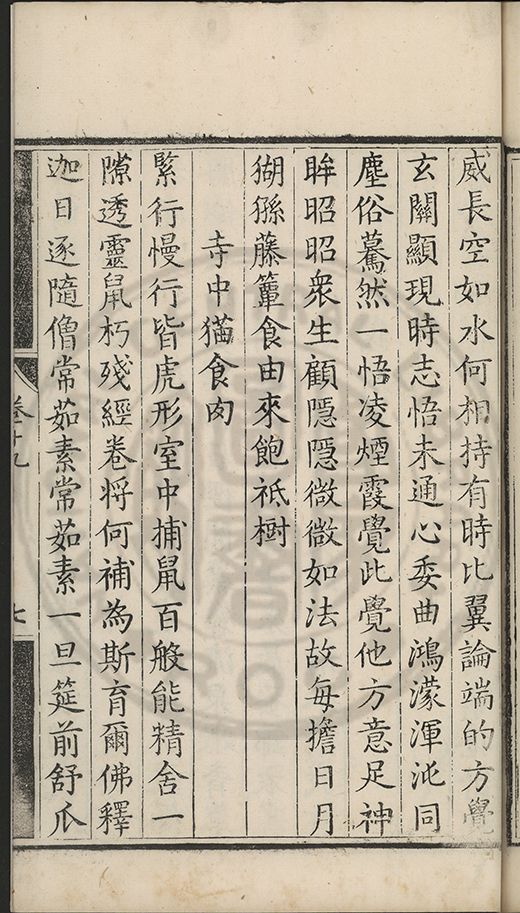 威長空如水何相持有時比翼論端的方覺
玄關顯現時志悟未通心委曲鴻濛渾沌同
塵俗驀然一悟凌煙霞覺此覺他方意足神
眸昭昭衆生顧隱隱微微如法故每擔日月
猢猻藤簞食由來飽祇樹
寺中猫食肉
緊行慢行皆虎形室中捕鼠百般能精舍一
隙透靈鼠朽殘經卷将何補為斯育爾佛釋
迦日逐隨僧常茹素常茹素一旦筵前舒爪
卷十九
七